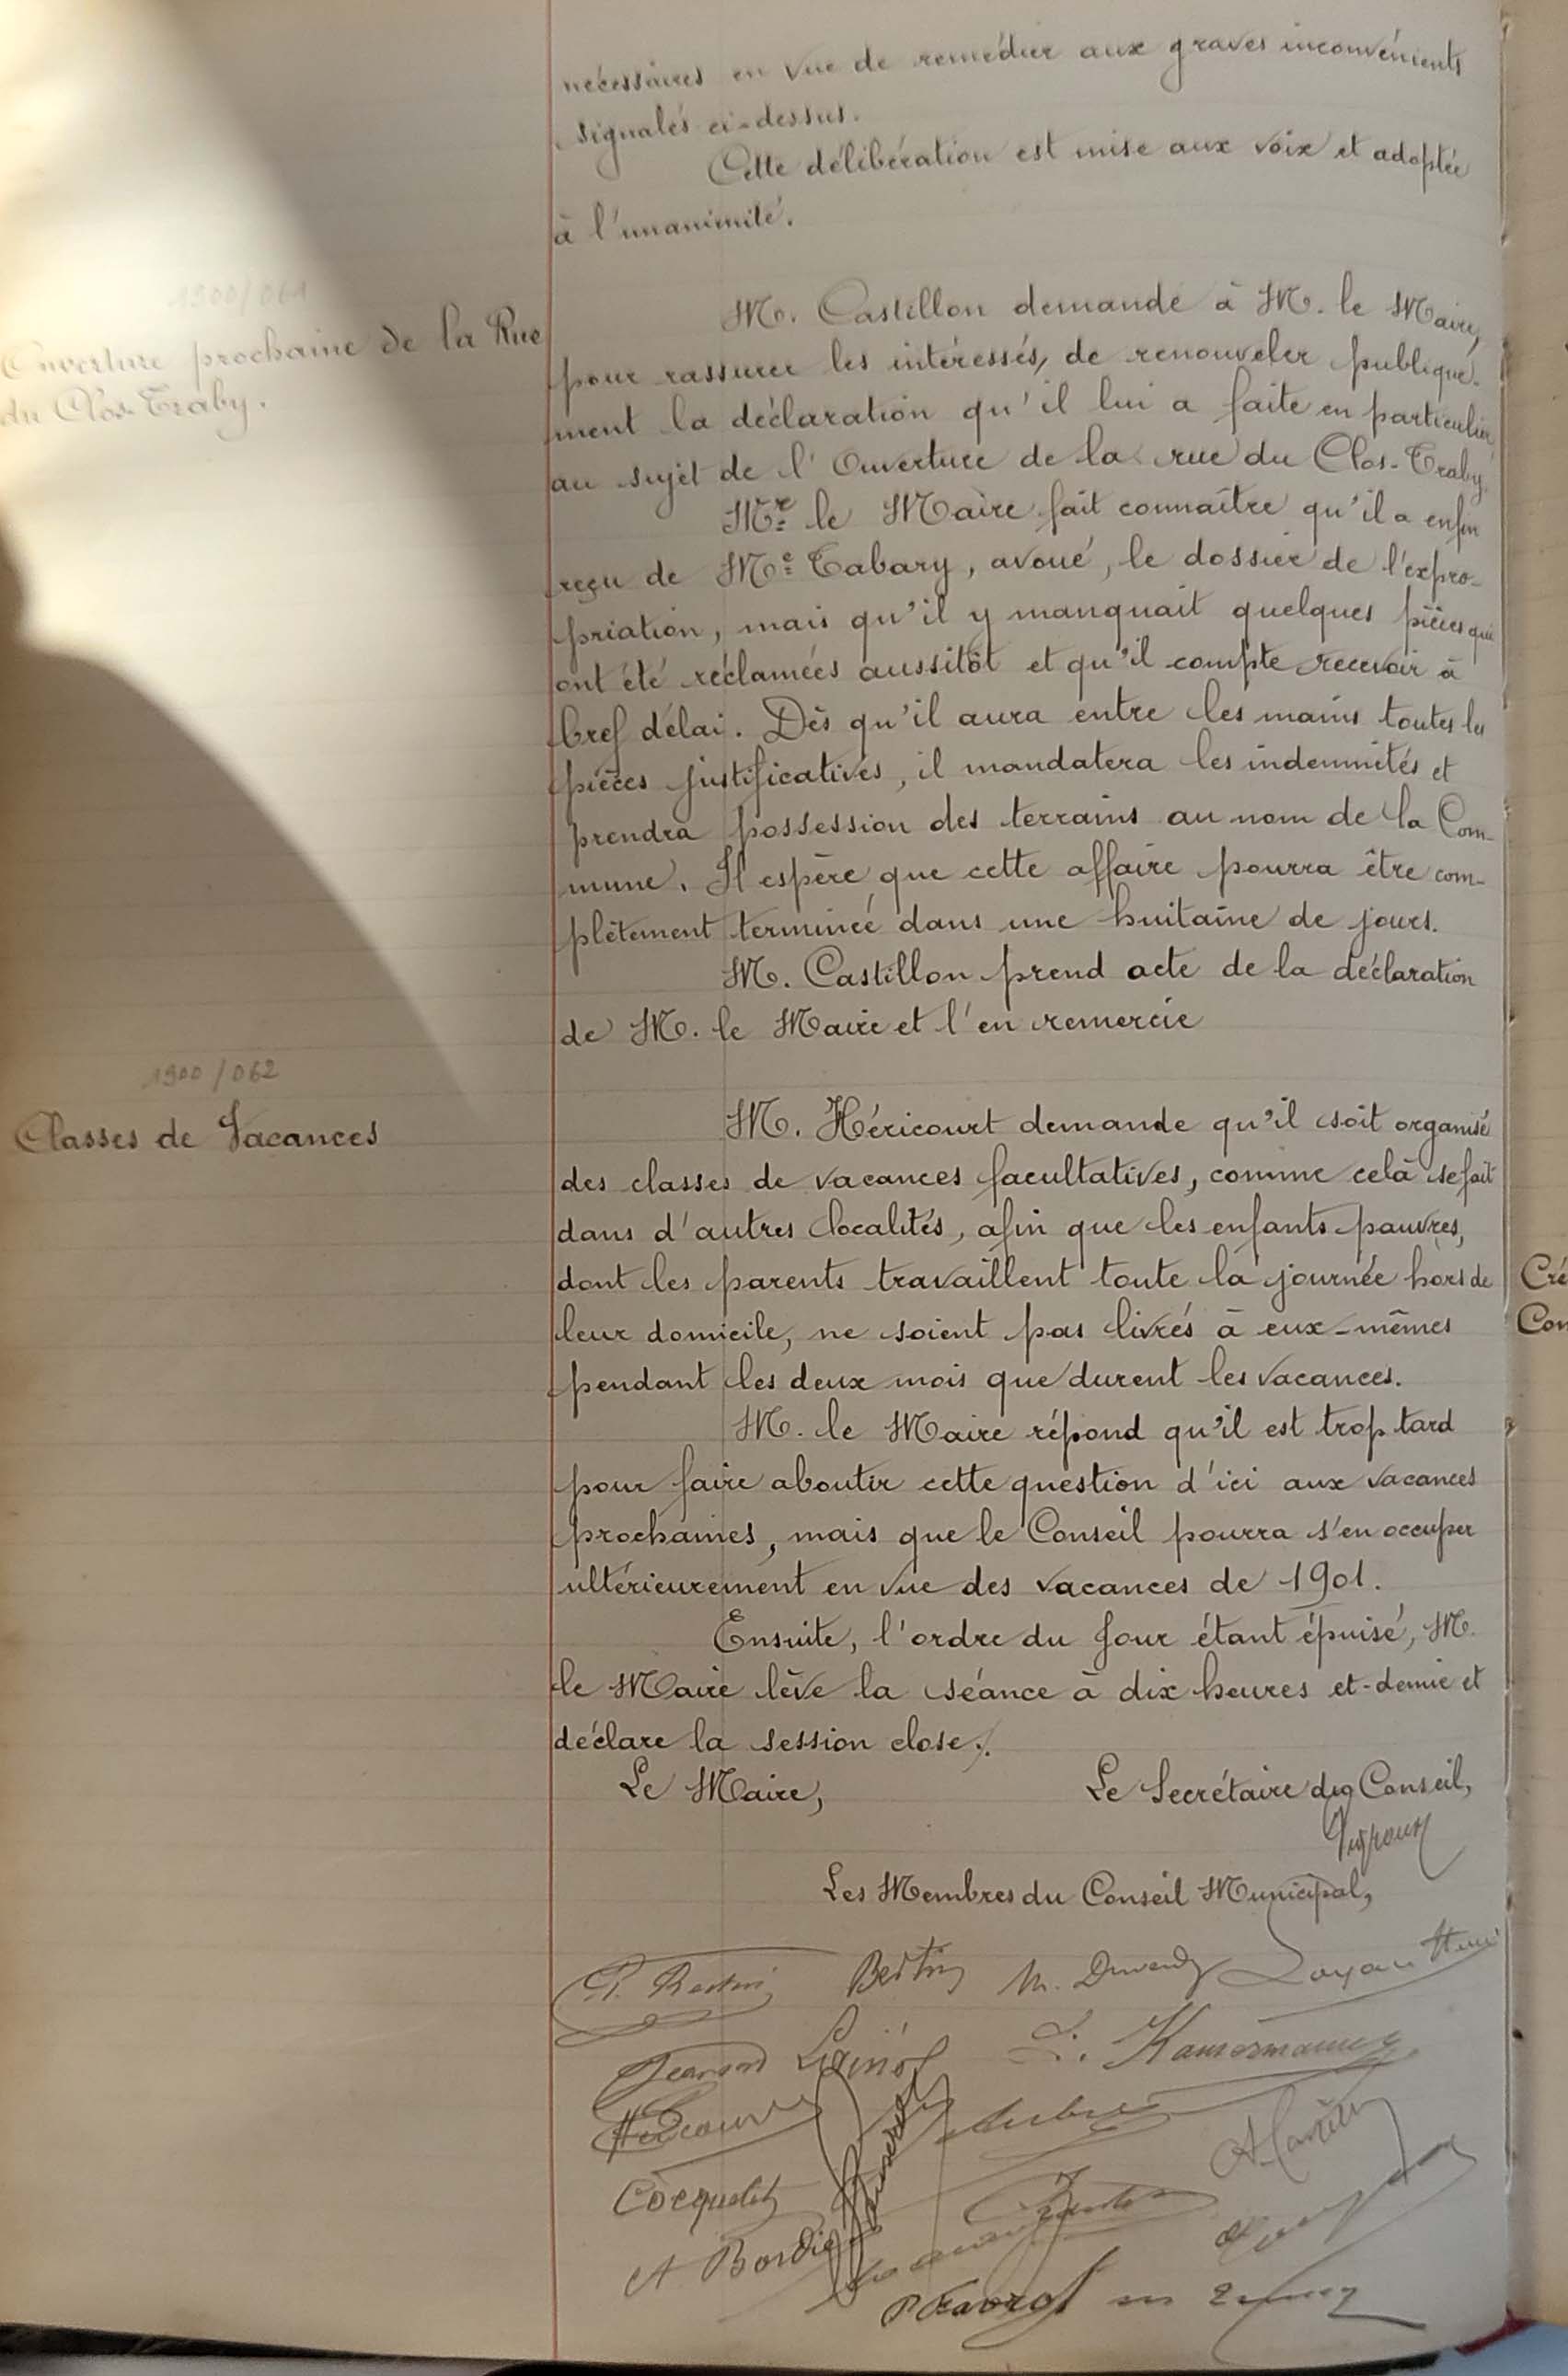 nécessaires en vue de remédier aux graves inconvénients
signalés ci-dessus.
Cette délibération est mise aux voix et adoptée
à l'unanimité.
1900/061
Ouverture prochaine de la Rue
du Clos-Traby.
M. Castillon demande à M. le Maire,
pour rassurer les intéressés, de renouveler publique-
ment la déclaration qu'il lui a faite en particulier
au sujet de l'Ouverture de la rue du Clos-Traby.
Mr le Maire fait connaître qu'il a enfin
reçu de Me Tabary, avoué, le dossier de l'expro-
priation, mais qu'il y manquait quelques pièces qui
ont été réclamées aussitôt et qu'il compte recevoir à
bref délai. Dès qu'il aura entre les mains toutes les
pièces justificatives, il mandatera les indemnités et
prendra possession des terrains au nom de la Com-
mune. Il espère que cette affaire pourra être com-
plètement terminée dans une huitaine de jours.
M. Castillon prend acte de la déclaration
de M. le Maire et l'en remercie
1900/062
Classes de Vacances
M. Héricourt demande qu'il soit organisé
des classes de vacances facultatives, comme celà se fait
dans d'autres localités, afin que les enfants pauvres,
dont les parents travaillent toute la journée hors de
leur domicile, ne soient pas livrés à eux-mêmes
pendant les deux mois que durent les vacances.
M. le Maire répond qu'il est trop tard
pour faire aboutir cette question d'ici aux vacances
prochaines, mais que le Conseil pourra s'en occuper
ultérieurement en vue des vacances de 1901.
Ensuite, l'ordre du Jour étant épuisé, M.
le Maire lève la séance à dix heures et-demie et
déclare la session close.
Le Maire,
Le Secrétaire du Conseil,
Les Membres du Conseil Municipal,
Bertin
Cocquelet
A Bordi
Cré
Con